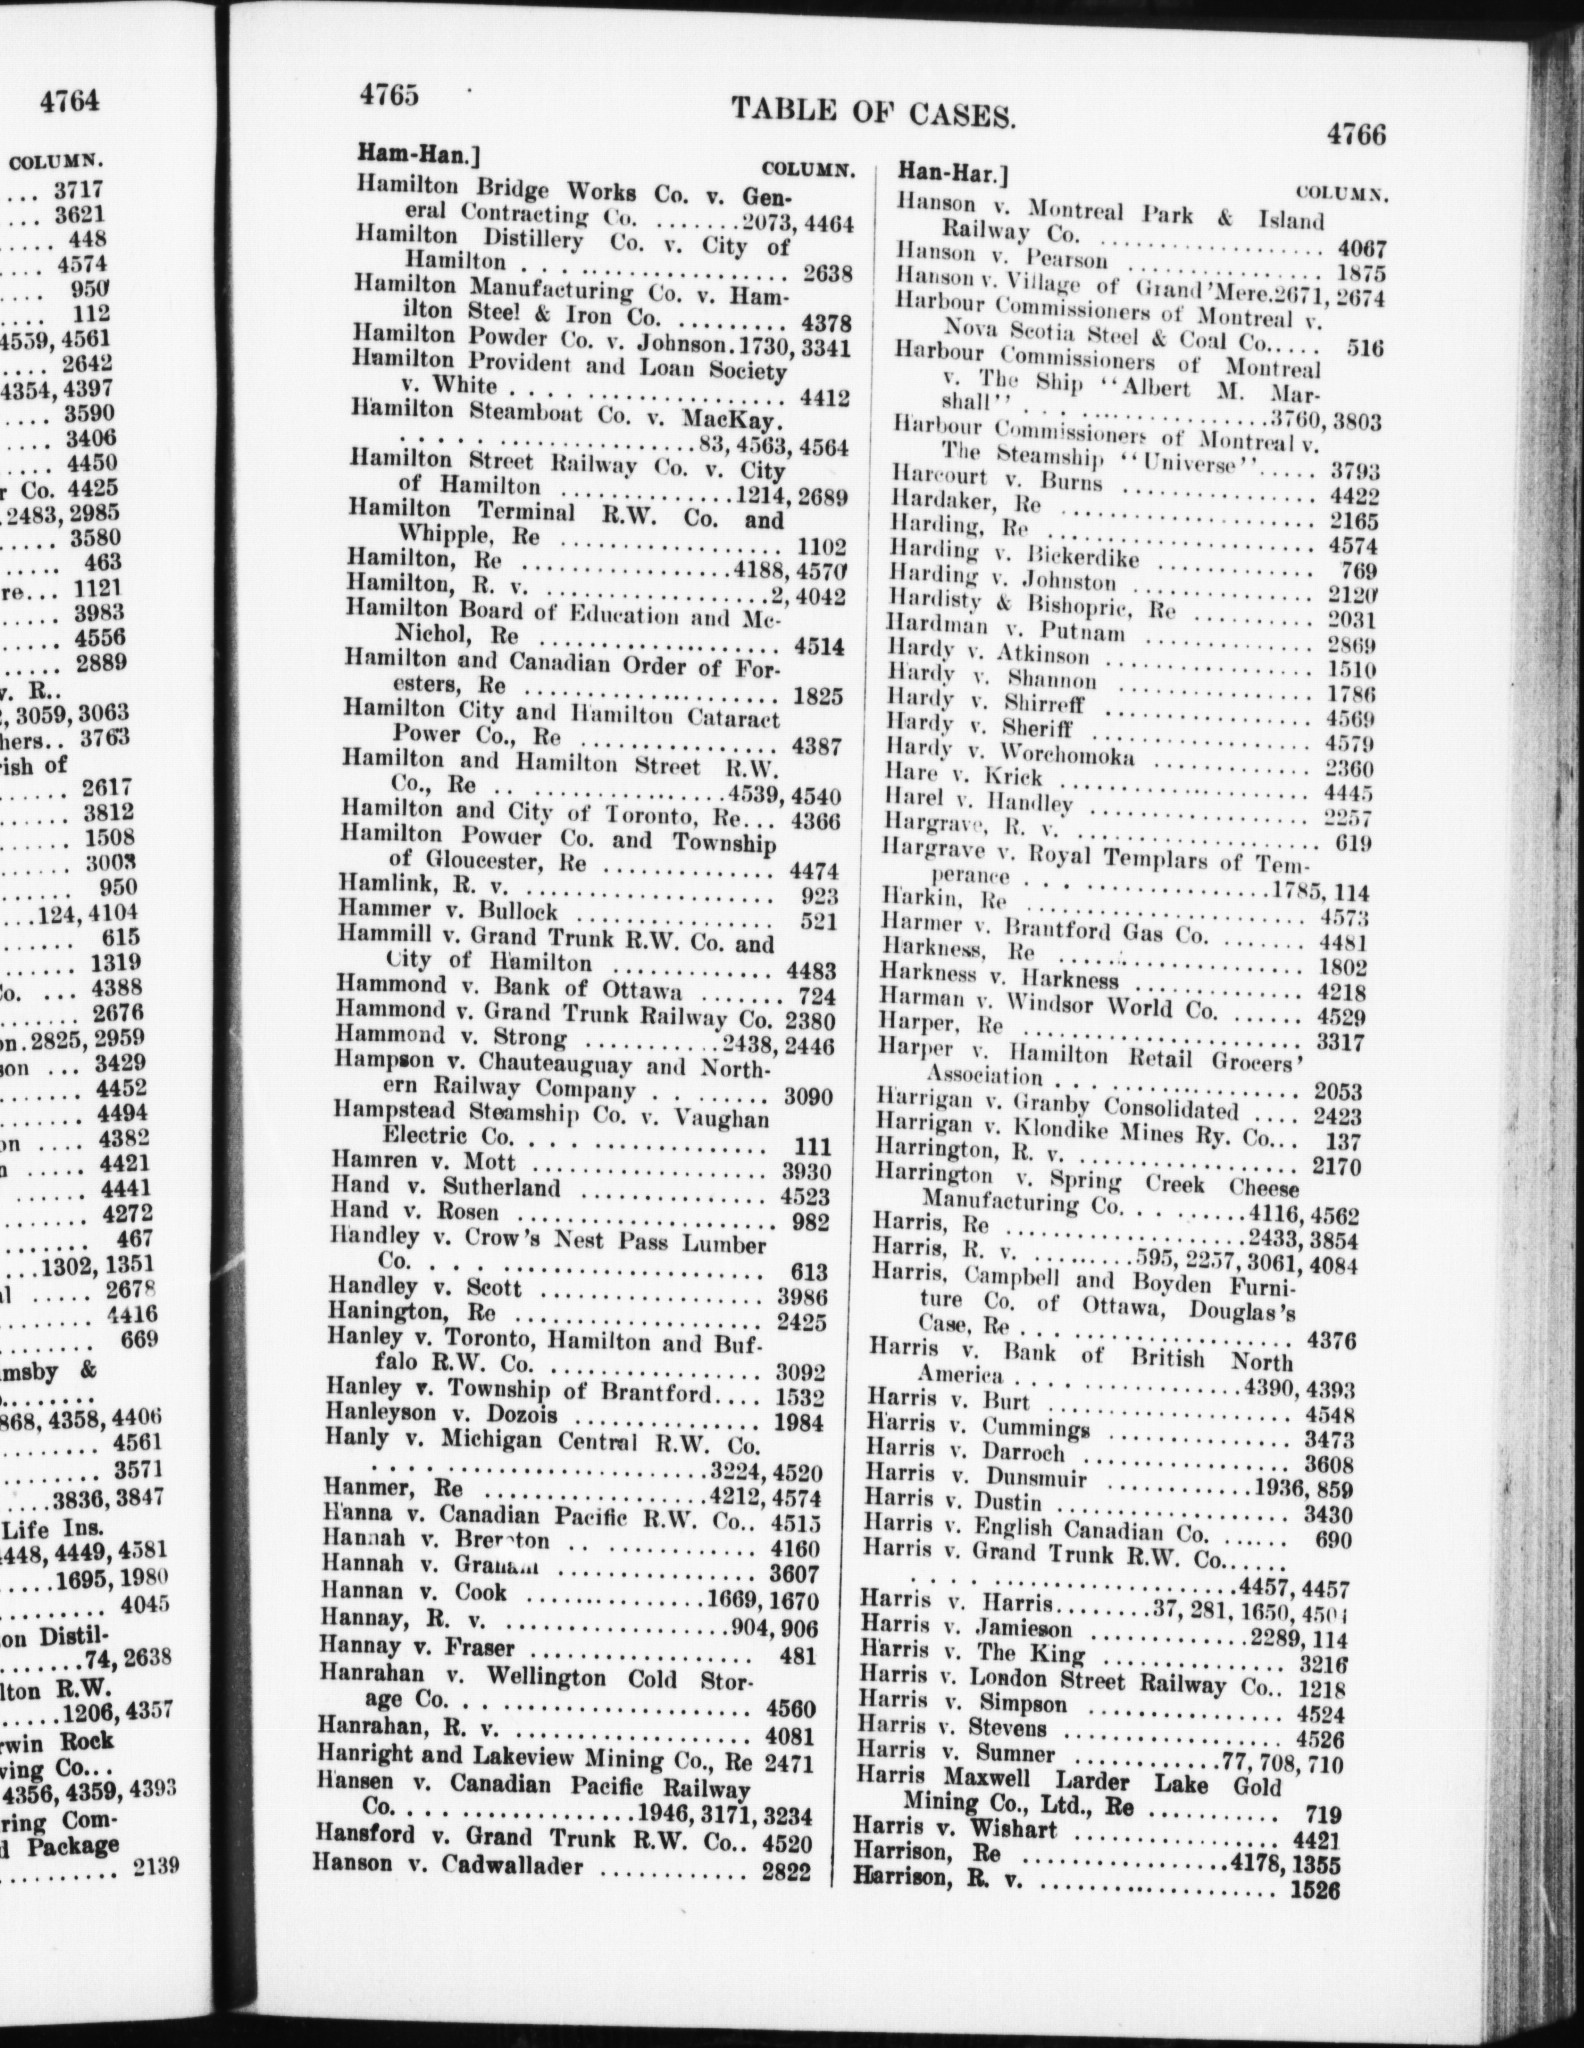 4764
COLUMN.
3717
3621
448
4574
950
112
4559, 4561
2642
4354, 4397
3590
3406
4450
r Co. 4425
2483, 2985
3580
463
re... 1121
3983
4556
2889
v. R..
3059, 3063
hers.. 3763
ish of
2617
3812
1508
3003
950
124, 4104
615
1319
Co. ... 4388
2676
on. 2825, 2959
son ... 3429
4452
4494
on .... 4382
n ..... 4421
4441
4272
467
1302, 1351
al ..... 2678
4416
669
msby &
868, 4358, 4406
4561
3571
3836, 3847
Life Ins.
4448, 4449, 4581
1695, 1980
4045
on Distil-
74, 2638
lton R.W.
1206, 4357
rwin Rock
ving Co...
4356, 4359, 4393
ring Com-
d Package
2139
4765
TABLE OF CASES.
4766
Ham-Han.]
COLUMN.
Hamilton Bridge Works Co. v. Gen-
eral Contracting Co. .......2073, 4464
Hamilton Distillery Co. v. City of
Hamilton .................. 2638
Hamilton Manufacturing Co. v. Ham-
ilton Steel & Iron Co. ......... 4378
Hamilton Powder Co. v. Johnson.1730, 3341
Hamilton Provident and Loan Society
v. White ................... 4412
Hamilton Steamboat Co. v. MacKay.
.....................83, 4563, 4564
Hamilton Street Railway Co. v. City
of Hamilton ..............1214, 2689
Hamilton Terminal R.W. Co. and
Whipple, Re ................. 1102
Hamilton, Re .................4188, 4570
Hamilton, R. v. ..................2, 4042
Hamilton Board of Education and Mc-
Nichol, Re ................... 4514
Hamilton and Canadian Order of For-
esters, Re .................... 1825
Hamilton City and Hamilton Cataract
Power Co., Re ................ 4387
Hamilton and Hamilton Street R.W.
Co., Re ..................4539, 4540
Hamilton and City of Toronto, Re... 4366
Hamilton Powder Co. and Township
of Gloucester, Re .............. 4474
Hamlink, R. v. .................... 923
Hammer v. Bullock ................ 521
Hammill v. Grand Trunk R.W. Co. and
City of Hamilton ............. 4483
Hammond v. Bank of Ottawa ....... 724
Hammond v. Grand Trunk Railway Co. 2380
Hammond v. Strong ...........2438, 2446
Hampson v. Chauteauguay and North-
ern Railway Company ........ 3090
Hampstead Steamship Co. v. Vaughan
Electric Co. ................. 111
Hamren v. Mott ................... 3930
Hand v. Sutherland ............... 4523
Hand v. Rosen ..................... 982
Handley v. Crow's Nest Pass Lumber
Co. ......................... 613
Handley v. Scott .................. 3986
Hanington, Re .................... 2425
Hanley v. Toronto, Hamilton and Buf-
falo R.W. Co. ................. 3092
Hanley v. Township of Brantford.... 1532
Hanleyson v. Dozois ............... 1984
Hanly v. Michigan Central R.W. Co.
...........................3224, 4520
Hanmer, Re ..................4212, 4574
Hanna v. Canadian Pacific R.W. Co.. 4515
Hannah v. ............... 4160
Hannah v. Graham ................ 3607
Hannan v. Cook ..............1669, 1670
Hannay, R. v. ..................904, 906
Hannay v. Fraser .................. 481
Hanrahan v. Wellington Cold Stor-
age Co. ..................... 4560
Hanrahan, R. v. ................... 4081
Hanright and Lakeview Mining Co., Re 2471
Hansen v. Canadian Pacific Railway
Co. ...................1946, 3171, 3234
Hansford v. Grand Trunk R.W. Co.. 4520
Hanson v. Cadwallader ............ 2822
Han-Har.]
COLUMN.
Hanson v. Montreal Park & Island
Railway Co. .................. 4067
Hanson v. Pearson ................ 1875
Hanson v. Village of Grand'Mere.2671, 2674
Harbour Commissioners of Montreal v.
Nova Scotia Steel & Coal Co..... 516
Harbour Commissioners of Montreal
v. The Ship "Albert M. Mar-
shall" ...................3760, 3803
Harbour Commissioners of Montreal v.
The Steamship "Universe"..... 3793
Harcourt v. Burns ................ 4422
Hardaker, Re ..................... 2165
Harding, Re ...................... 4574
Harding v. Bickerdike ............. 769
Harding v. Johnston ............... 2120
Hardisty & Bishopric, Re .......... 2031
Hardman v. Putnam .............. 2869
Hardy v. Atkinson ................ 1510
Hardy v. Shannon ................ 1786
Hardy v. Shirreff ................. 4569
Hardy v. Sheriff .................. 4579
Hardy v. Worchomoka ............. 2360
Hare v. Krick .................... 4445
Harel v. Handley ................. 2257
Hargrave, R. v. ................... 619
Hargrave v. Royal Templars of Tem-
perance ...................1785, 114
Harkin, Re ....................... 4573
Harmer v. Brantford Gas Co. ....... 4481
Harkness, Re ..................... 1802
Harkness v. Harkness .............. 4218
Harman v. Windsor World Co. ...... 4529
Harper, Re ....................... 3317
Harper v. Hamilton Retail Grocers'
Association ................... 2053
Harrigan v. Granby Consolidated .... 2423
Harrigan v. Klondike Mines Ry. Co... 137
Harrington, R. v. .................. 2170
Harrington v. Spring Creek Cheese
Manufacturing Co. .........4116, 4562
Harris, Re ....................2433, 3854
Harris, R. v. .........595, 2257, 3061, 4084
Harris, Campbell and Boyden Furni-
ture Co. of Ottawa, Douglas's
Case, Re ..................... 4376
Harris v. Bank of British North
America ..................4390, 4393
Harris v. Burt .................... 4548
Harris v. Cummings ............... 3473
Harris v. Darroch ................. 3608
Harris v. Dunsmuir ............1936, 859
Harris v. Dustin ................... 3430
Harris v. English Canadian Co. ...... 690
Harris v. Grand Trunk R.W. Co......
.........................4457, 4457
Harris v. Harris........37, 281, 1650, 4504
Harris v. Jamieson .............2289, 114
Harris v. The King ............... 3216
Harris v. London Street Railway Co.. 1218
Harris v. Simpson ................ 4524
Harris v. Stevens .................. 4526
Harris v. Sumner ............77, 708, 710
Harris Maxwell Larder Lake Gold
Mining Co., Ltd., Re ........... 719
Harris v. Wishart ................. 4421
Harrison, Re .................4178, 1355
Harrison, R. v. .................... 1526